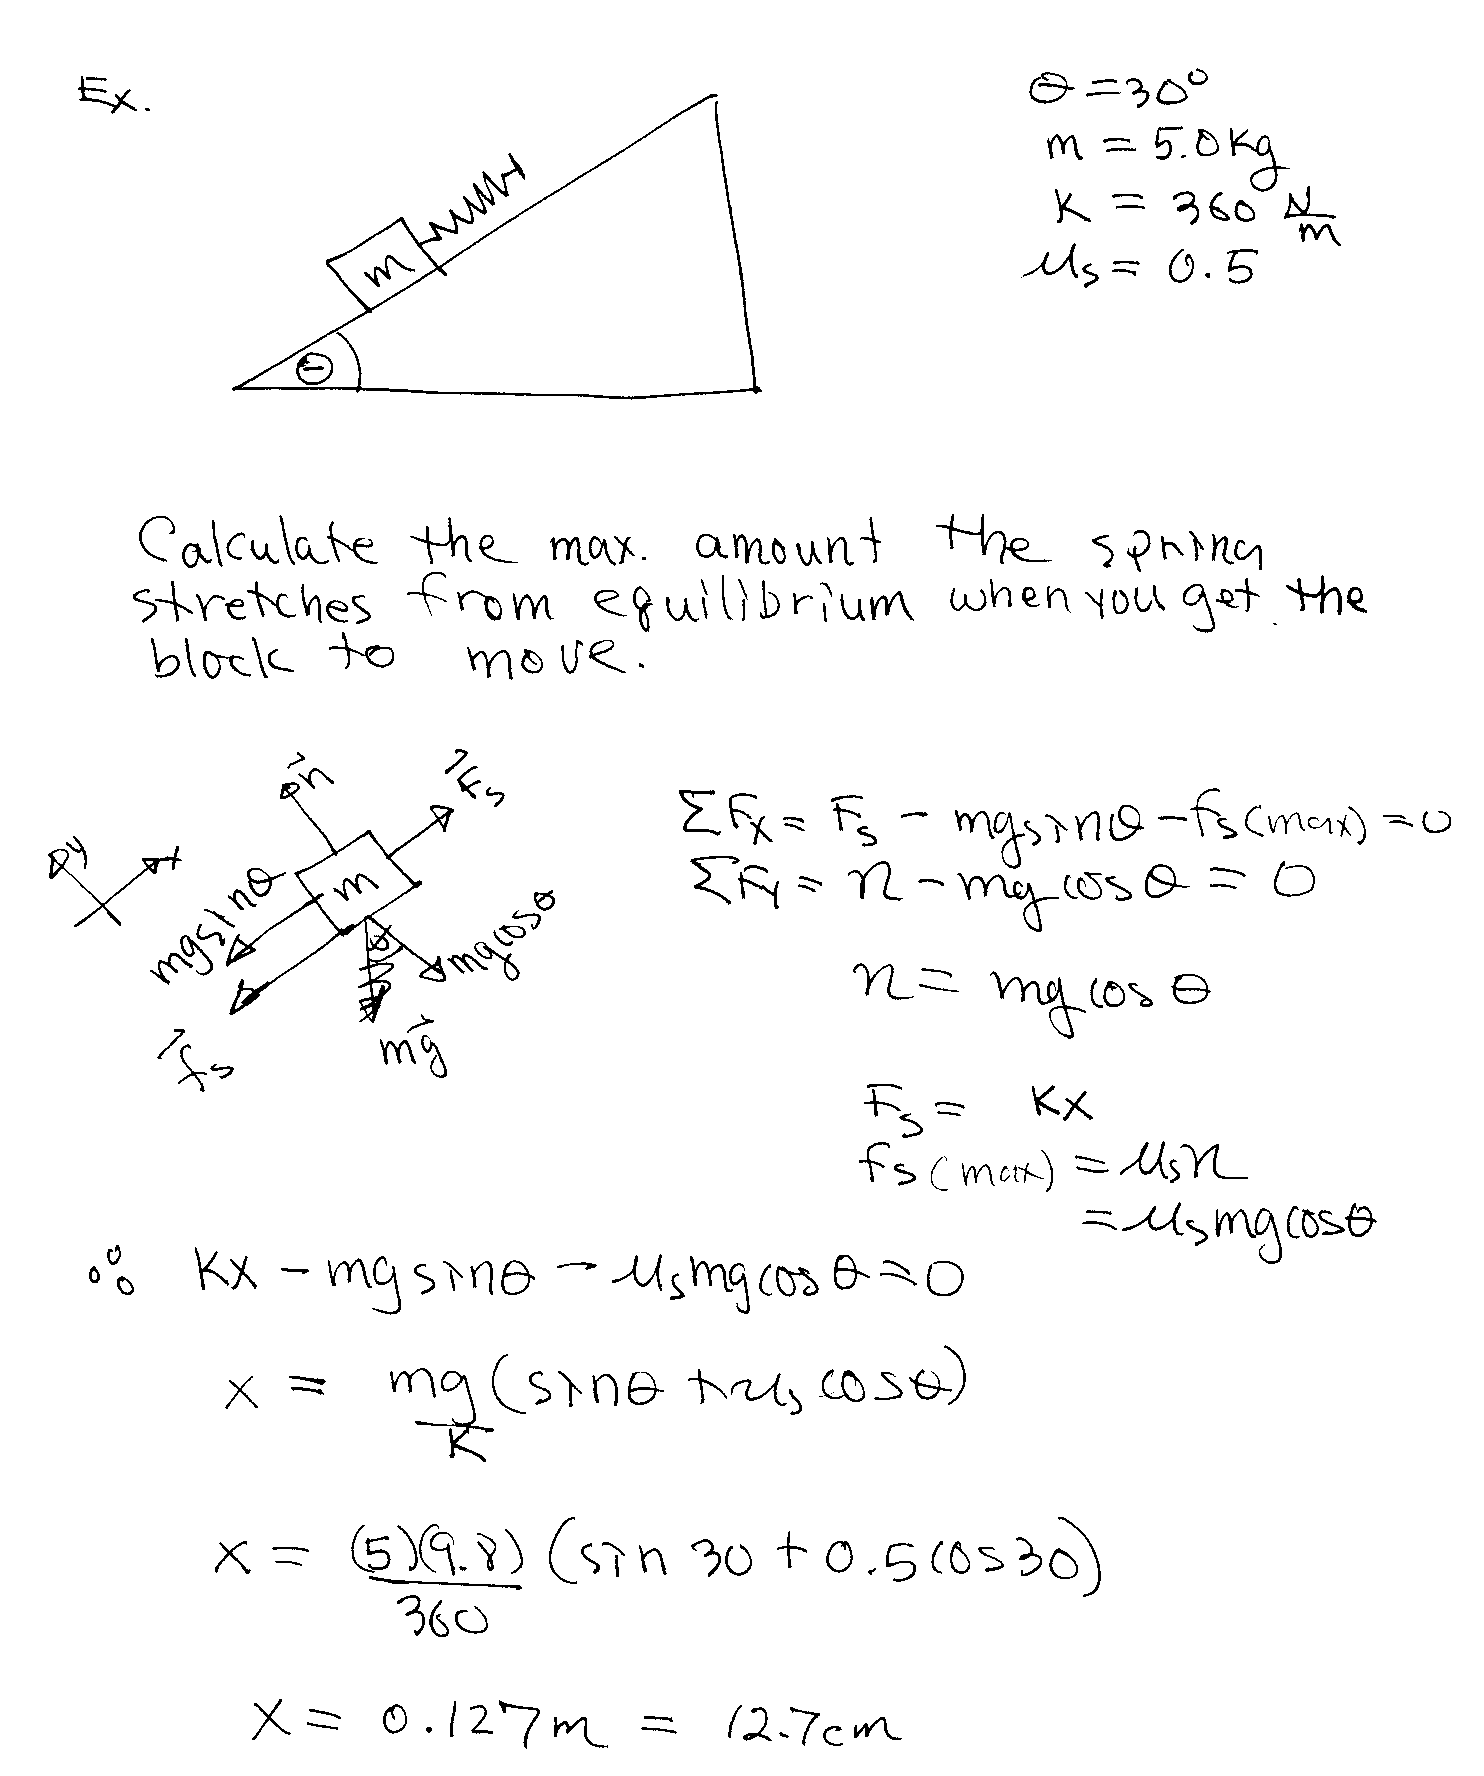 Ex.
θ = 30°
m = 5.0kg
K = 360 N/m
μs = 0.5
m
θ
Calculate the max. amount the spring
stretches from equilibrium when you get the
block to move.
n⃗
F⃗s
y
x
m
mgsinθ
θ
mgcosθ
f⃗s
mg⃗
ΣFx = Fs - mgsinθ - fs(max) = 0
ΣFy = n - mg cosθ = 0
n = mg cosθ
Fs = Kx
fs(max) = μsn
= μsmgcosθ
∴ Kx - mgsinθ - μsmgcosθ = 0
x = mg/K (sinθ + μs cosθ)
x = (5)(9.8)/360 (sin 30 + 0.5 cos 30)
x = 0.127m = 12.7cm